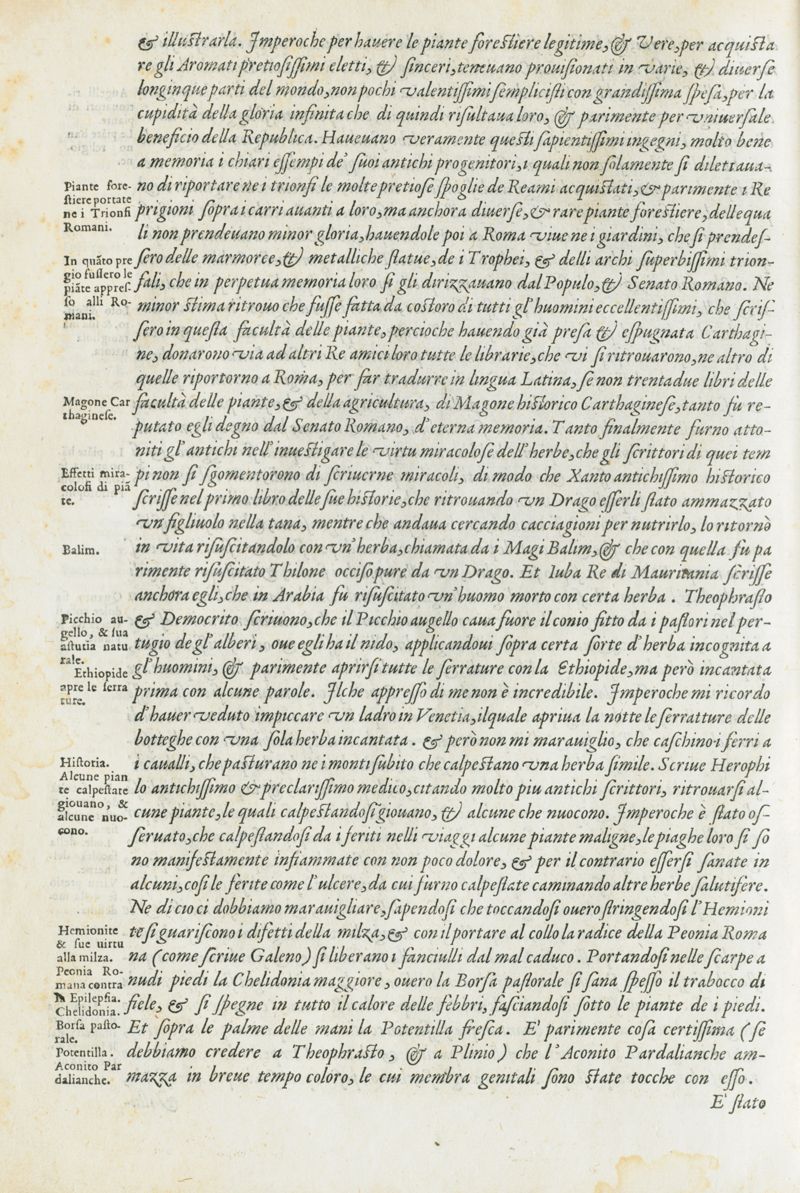 & illuſtrarla. Imperoche per hauere le piante foreſtiere legitime, & Vere, per acquiſta
re gli Aromati pretioſiſſimi eletti, & ſinceri, teneuano prouiſionati in varie, & diuerſe
longinque parti del mondo, non pochi valentiſſimi ſempliciſti con grandiſſima ſpeſa, per la
cupidità della gloria infinita che di quindi riſultaua loro, & parimente per vniuerſale
beneficio della Republica. Haueuano veramente queſti ſapientiſſimi ingegni, molto bene
a memoria i chiari eſſempi de' ſuoi antichi progenitori, i quali non ſolamente ſi dilettaua-
Piante fore-
ſtiere portate
ne i Trionfi
Romani.
no di riportare ne i trionfi le molte pretioſe ſpoglie de Reami acquiſtati, & parimente i Re
prigioni ſopra i carri auanti a loro, ma anchora diuerſe, & rare piante foreſtiere, delle qua
li non prendeuano minor gloria, hauendole poi a Roma viue ne i giardini, che ſi prendeſ-
In quãto pre
gio fuſſero le
piãte appreſ.
ſo alli Ro-
mani.
ſero delle marmoree, & metalliche ſtatue, de i Trophei, & delli archi ſuperbiſſimi trion-
fali, che in perpetua memoria loro ſi gli dirizzauano dal Populo, & Senato Romano. Ne
minor ſtima ritrouo che fuſſe fatta da coſtoro di tutti gl'huomini eccellentiſſimi, che ſcriſ-
ſero in queſta facultà delle piante, percioche hauendo già preſa & eſpugnata Carthagi-
ne, donarono via ad altri Re amici loro tutte le librarie, che vi ſi ritrouarono, ne altro di
quelle riportorno a Roma, per far tradurre in lingua Latina, ſe non trentadue libri delle
Magone Car
thagineſe.
facultà delle piante, & della agricultura, di Magone hiſtorico Carthagineſe, tanto fù re-
putato egli degno dal Senato Romano, d'eterna memoria. Tanto finalmente furno atto-
niti gl'antichi nell'inueſtigare le virtu miracoloſe dell'herbe, che gli ſcrittori di quei tem
Effetti mira-
coloſi di piã
te.
pi non ſi ſgomentorono di ſcriuerne miracoli, di modo che Xanto antichiſſimo hiſtorico
ſcriſſe nel primo libro delle ſue hiſtorie, che ritrouando vn Drago eſſerli ſtato ammazzato
vn figliuolo nella tana, mentre che andaua cercando cacciagioni per nutrirlo, lo ritornò
Balim.
in vita riſuſcitandolo con vn'herba, chiamata da i Magi Balim, & che con quella fù pa
rimente riſuſcitato Thilone occiſo pure da vn Drago. Et Iuba Re di Mauritania ſcriſſe
anchora egli, che in Arabia fù riſuſcitato vn'huomo morto con certa herba. Theophraſto
Picchio au-
gello, & ſua
aſtutia natu
rale.
& Democrito ſcriuono, che il Picchio augello caua fuore il conio fitto da i paſtori nel per-
tugio de gl'alberi, oue egli ha il nido, applicandoui ſopra certa ſorte d'herba incognita a
Ethiopide
apre le ſerra
ture.
gl'huomini, & parimente aprirſi tutte le ſerrature con la Ethiopide, ma però incantata
prima con alcune parole. Ilche appreſſo di me non è incredibile. Imperoche mi ricordo
d'hauer veduto impiccare vn ladro in Venetia, ilquale apriua la notte le ſerratture delle
botteghe con vna ſola herba incantata. & però non mi marauiglio, che caſchino i ferri a
Hiſtoria.
Alcune pian
te calpeſtate
giouano, &
alcune nuo-
cono.
i caualli, che paſturano ne i monti ſubito che calpeſtano vna herba ſimile. Scriue Herophi
lo antichiſſimo & preclariſſimo medico, citando molto piu antichi ſcrittori, ritrouarſi al-
cune piante, le quali calpeſtandoſi giouano, & alcune che nuocono. Imperoche è ſtato oſ-
ſeruato, che calpeſtandoſi da i feriti nelli viaggi alcune piante maligne, le piaghe loro ſi ſo
no manifeſtamente infiammate con non poco dolore, & per il contrario eſſerſi ſanate in
alcuni, coſi le ferite come l'ulcere, da cui furno calpeſtate caminando altre herbe ſalutifere.
Ne di cio ci dobbiamo marauigliare, ſapendoſi che toccandoſi ouero ſtringendoſi l'Hemioni
Hemionite
& ſue uirtu
alla milza.
te ſi guariſcono i difetti della milza, & con il portare al collo la radice della Peonia Roma
na (come ſcriue Galeno) ſi liberano i fanciulli dal mal caduco. Portandoſi nelle ſcarpe a
Peonia Ro-
mana contra
l'Epilepſia.
Chelidonia.
nudi piedi la Chelidonia maggiore, ouero la Borſa paſtorale ſi ſana ſpeſſo il trabocco di
fiele, & ſi ſpegne in tutto il calore delle febbri, faſciandoſi ſotto le piante de i piedi.
Borſa paſto-
rale.
Potentilla.
Et ſopra le palme delle mani la Potentilla freſca. E' parimente coſa certiſſima (ſe
debbiamo credere a Theophraſto, & a Plinio) che l'Aconito Pardalianche am-
Aconito Par
dalianche.
mazza in breue tempo coloro, le cui membra genitali ſono ſtate tocche con eſſo.
E' ſtato